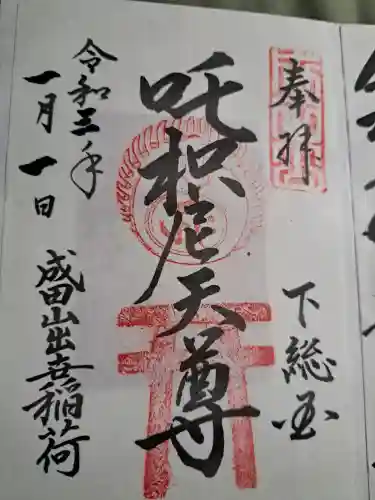 奉拝
下総国
吒枳尼天尊
令和三年
一月一日
成田山出世稲荷